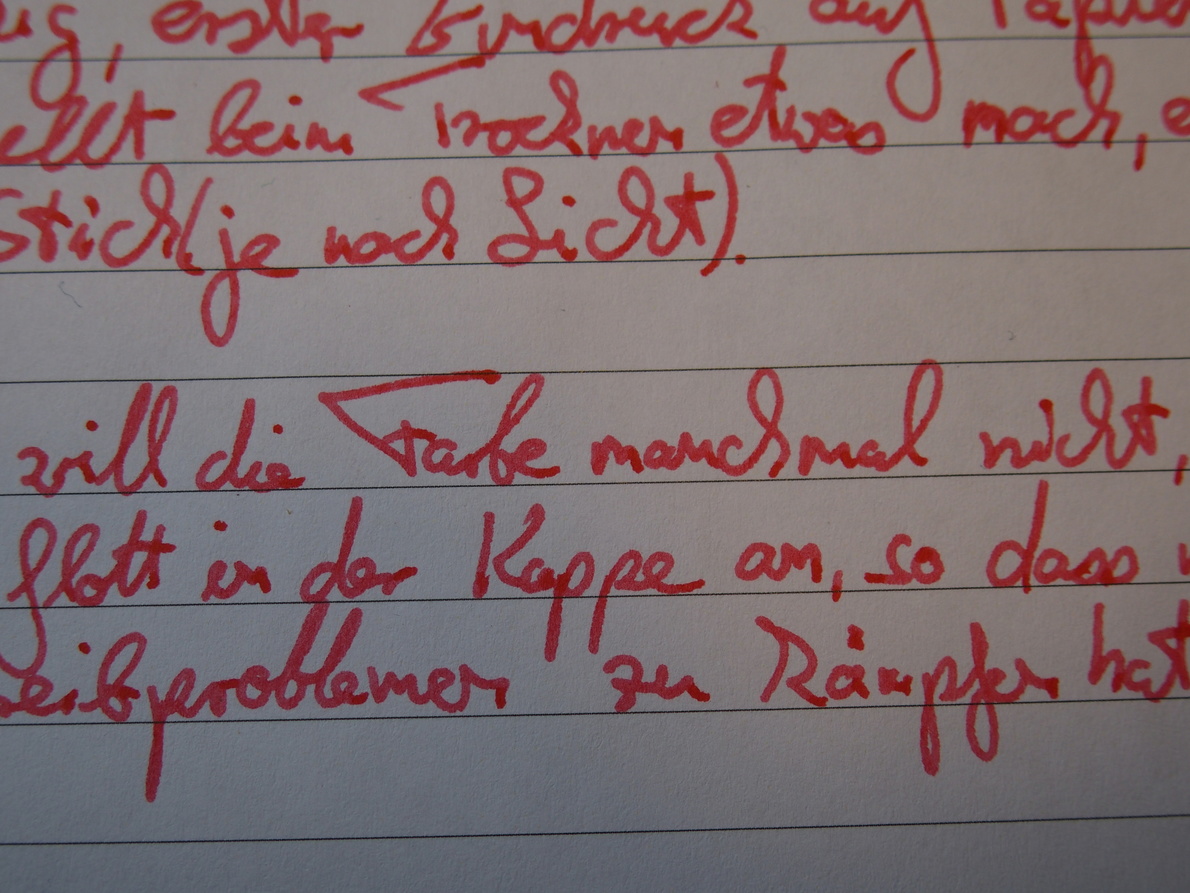 ug, erster Eindruck auf Papier
ellt beim Trocknen etwas nach, e
Stich (je nach Licht).
will die Farbe manchmal nicht,
flott in der Kappe an, so dass
eibproblemen zu kämpfen hat